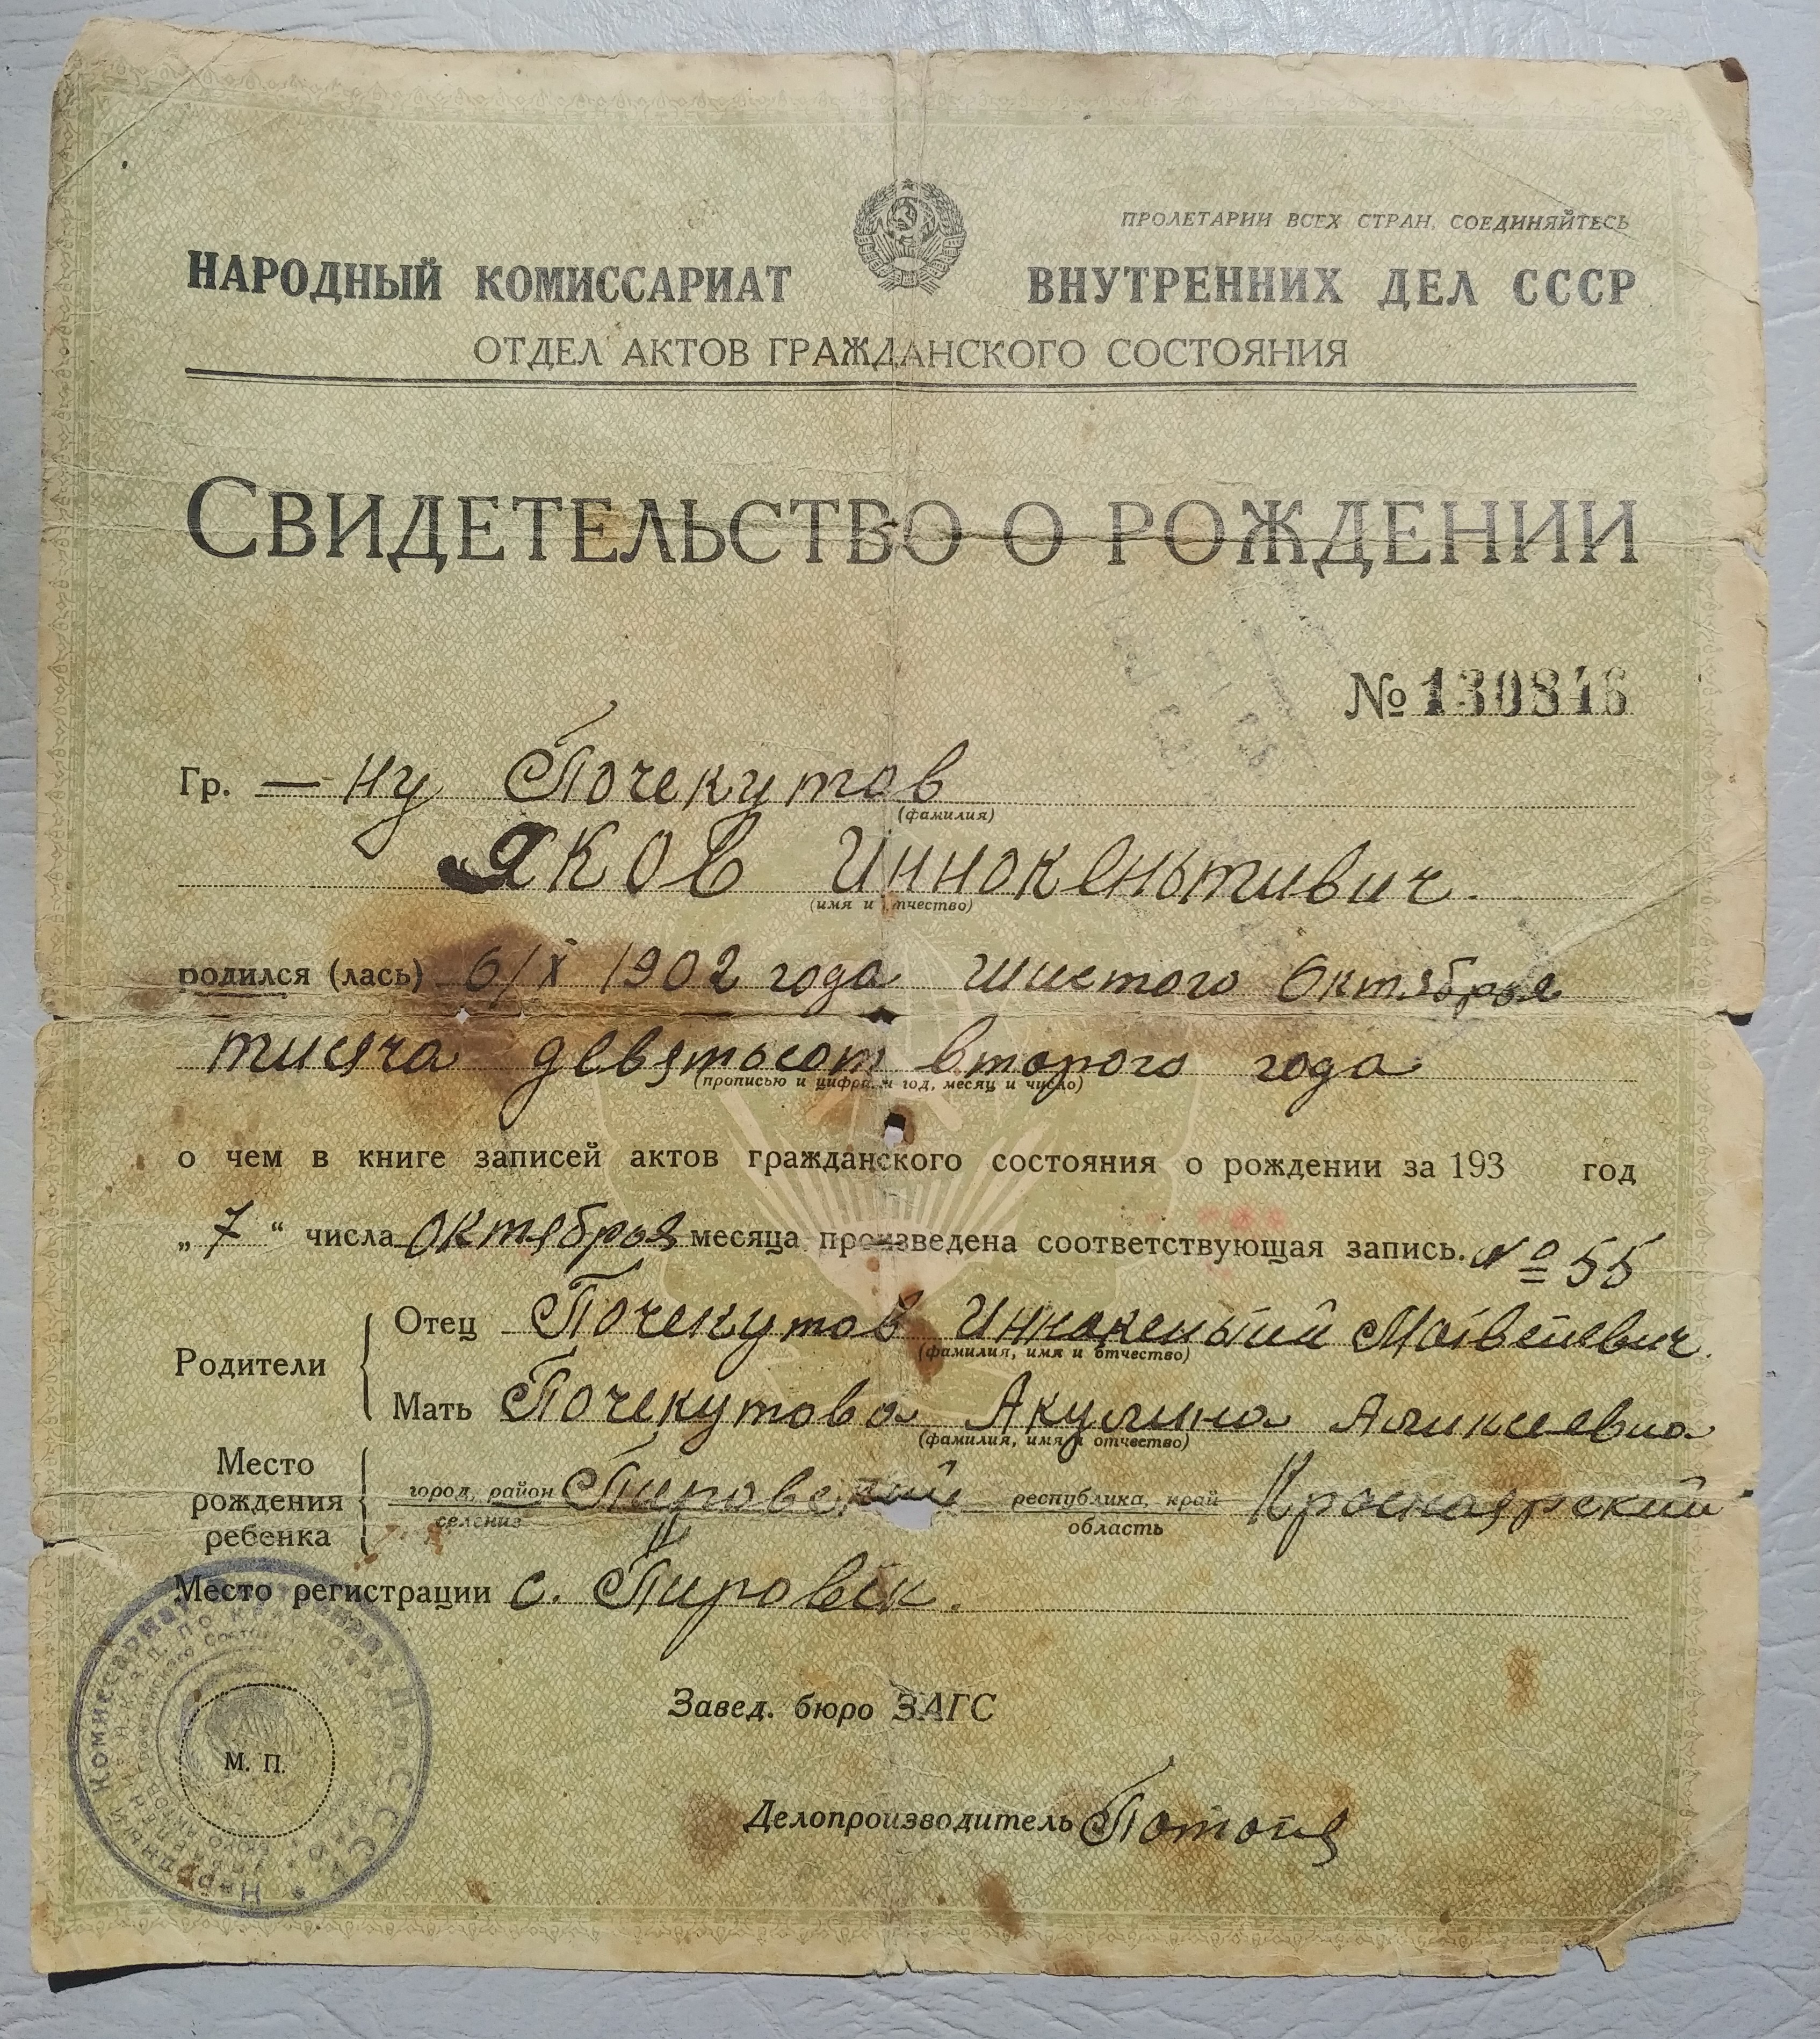 ПРОЛЕТАРИИ ВСЕХ СТРАН, СОЕДИНЯЙТЕСЬ
НАРОДНЫЙ КОМИССАРИАТ ВНУТРЕННИХ ДЕЛ СССР
ОТДЕЛ АКТОВ ГРАЖДАНСКОГО СОСТОЯНИЯ
СВИДЕТЕЛЬСТВО О РОЖДЕНИИ
№ 130846
Гр. — ну Почекутов
(фамилия)
Яков Иннокеньтивич.
(имя и отчество)
родился (лась) 6/X 1902 года шистого Октябрья
тисяча девятьсот второго года
(прописью и цифрами год, месяц и число)
о чем в книге записей актов гражданского состояния о рождении за 193 год
„7“ числа октябрья месяца произведена соответствующая запись. № 55
Родители
Отец Почекутов Иннокеньтий Матвеевич.
(фамилия, имя и отчество)
Мать Почекутова Акулина Аликсеевна
(фамилия, имя и отчество)
Место рождения ребенка
город, район Пировский республика, край Красноярский
селение область
Место регистрации с. Пировск.
Завед. бюро ЗАГС
М. П.
Делопроизводитель
Народный Комиссариат Внутренних Дел СССР